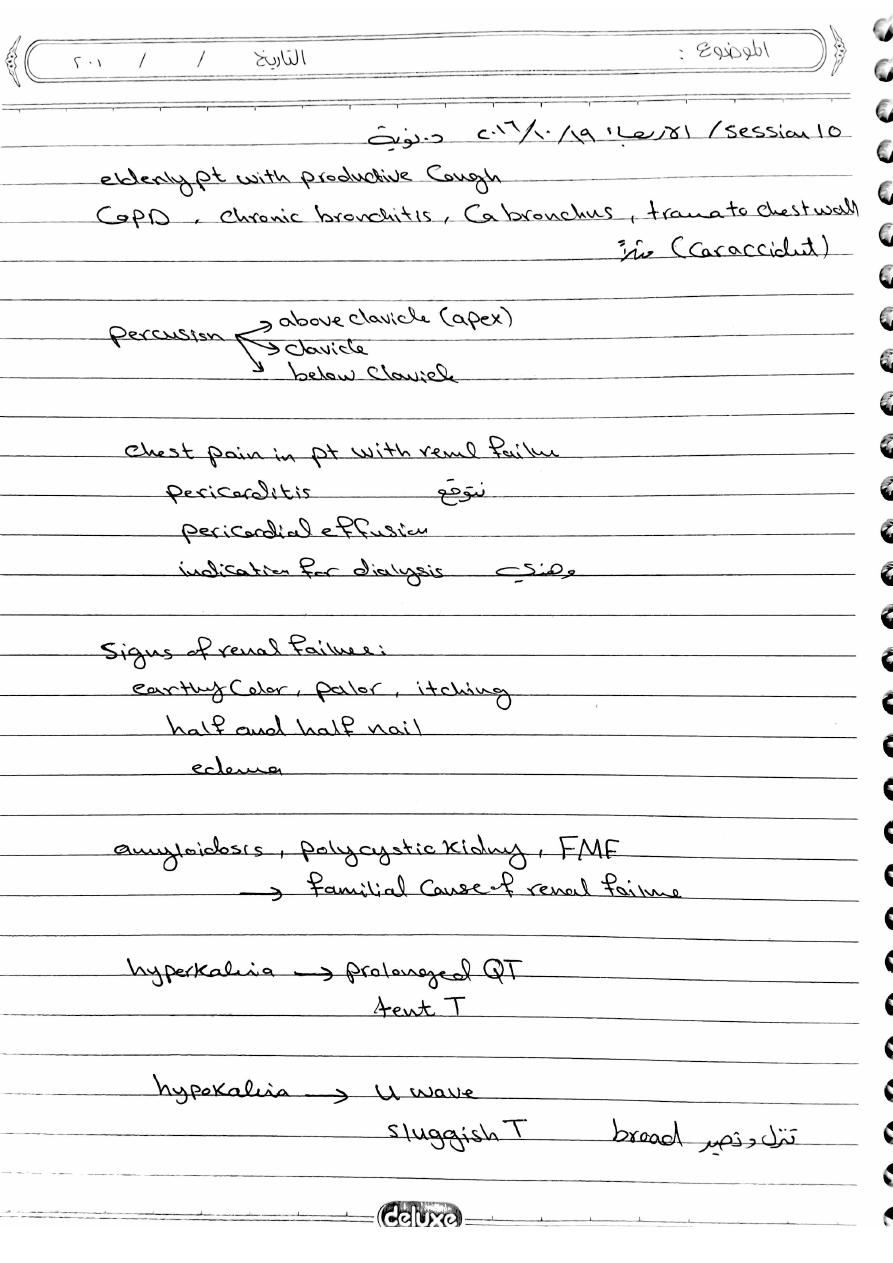 الموضوع : التاريخ / / ٢٠١
Session 10 / الاربعاء ٢٠١٦/١٠/١٩ د.نوية
elderly pt with productive Cough
COPD , chronic bronchitis , Ca bronchus , trauma to chest wall
(Car accident) مثلاً
percussion → above clavicle (apex)
→ clavicle
→ below Clavicle
chest pain in pt with renal failure
pericarditis نتوقع
pericardial effusion
indication for dialysis
Signs of renal failure:
earthy Color , palor , itching
half and half nail
edema
amyloidosis , polycystic Kidney , FMF
→ familial Cause of renal failure
hyperkalmia → prolonged QT
tent T
hypokalmia → U wave
sluggish T broad تنزل وتصير
deluxe